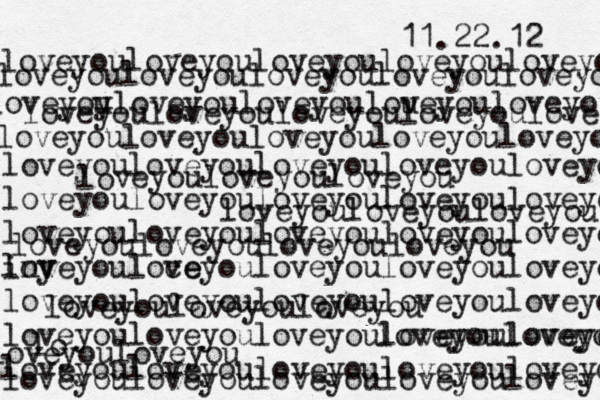 11.22.12
loveyouloveyouloveyouloveyouloveyo
loveyouloveyouloveyouloveyouloveyo
loveyouloveyouloveyouloveyouloveyo
loveyouloveyouloveyouloveyoulove
loveyouloveyouloveyouloveyouloveyo
loveyouloveyouloveyouloveyouloveyo
loveyouloveyouloveyou
loveyouloveyouloveyouloveyouloveyo
loveyouloveyouloveyou
loveyouloveyouloveyouloveyouloveyo
loveyouloveyouloveyouloveyou
loveyouloveyouloveyouloveyouloveyo
loveyouloveyouloveyouloveyouloveyo
loveyouloveyouloveyou
loveyouloveyouloveyouloveyouloveyo
oveyouloveyou
loveyouloveyouloveyouloveyouloveyo
loveyouloveyouloveyouloveyoulovey